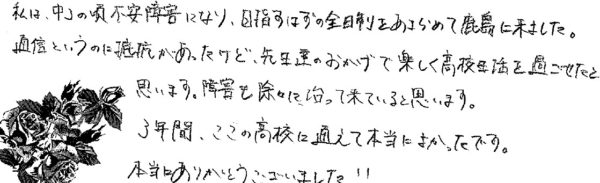 私は、中1の頃不安障害になり、目指すはずの全日制をあきらめて鹿島に来ました。
通信というのに抵抗があったけど、先生達のおかげで楽しく高校生活を過ごせたと
思います。障害も除々に治って来ていると思います。
3年間、ここの高校に通えて本当によかったです。
本当にありがとうございました!!